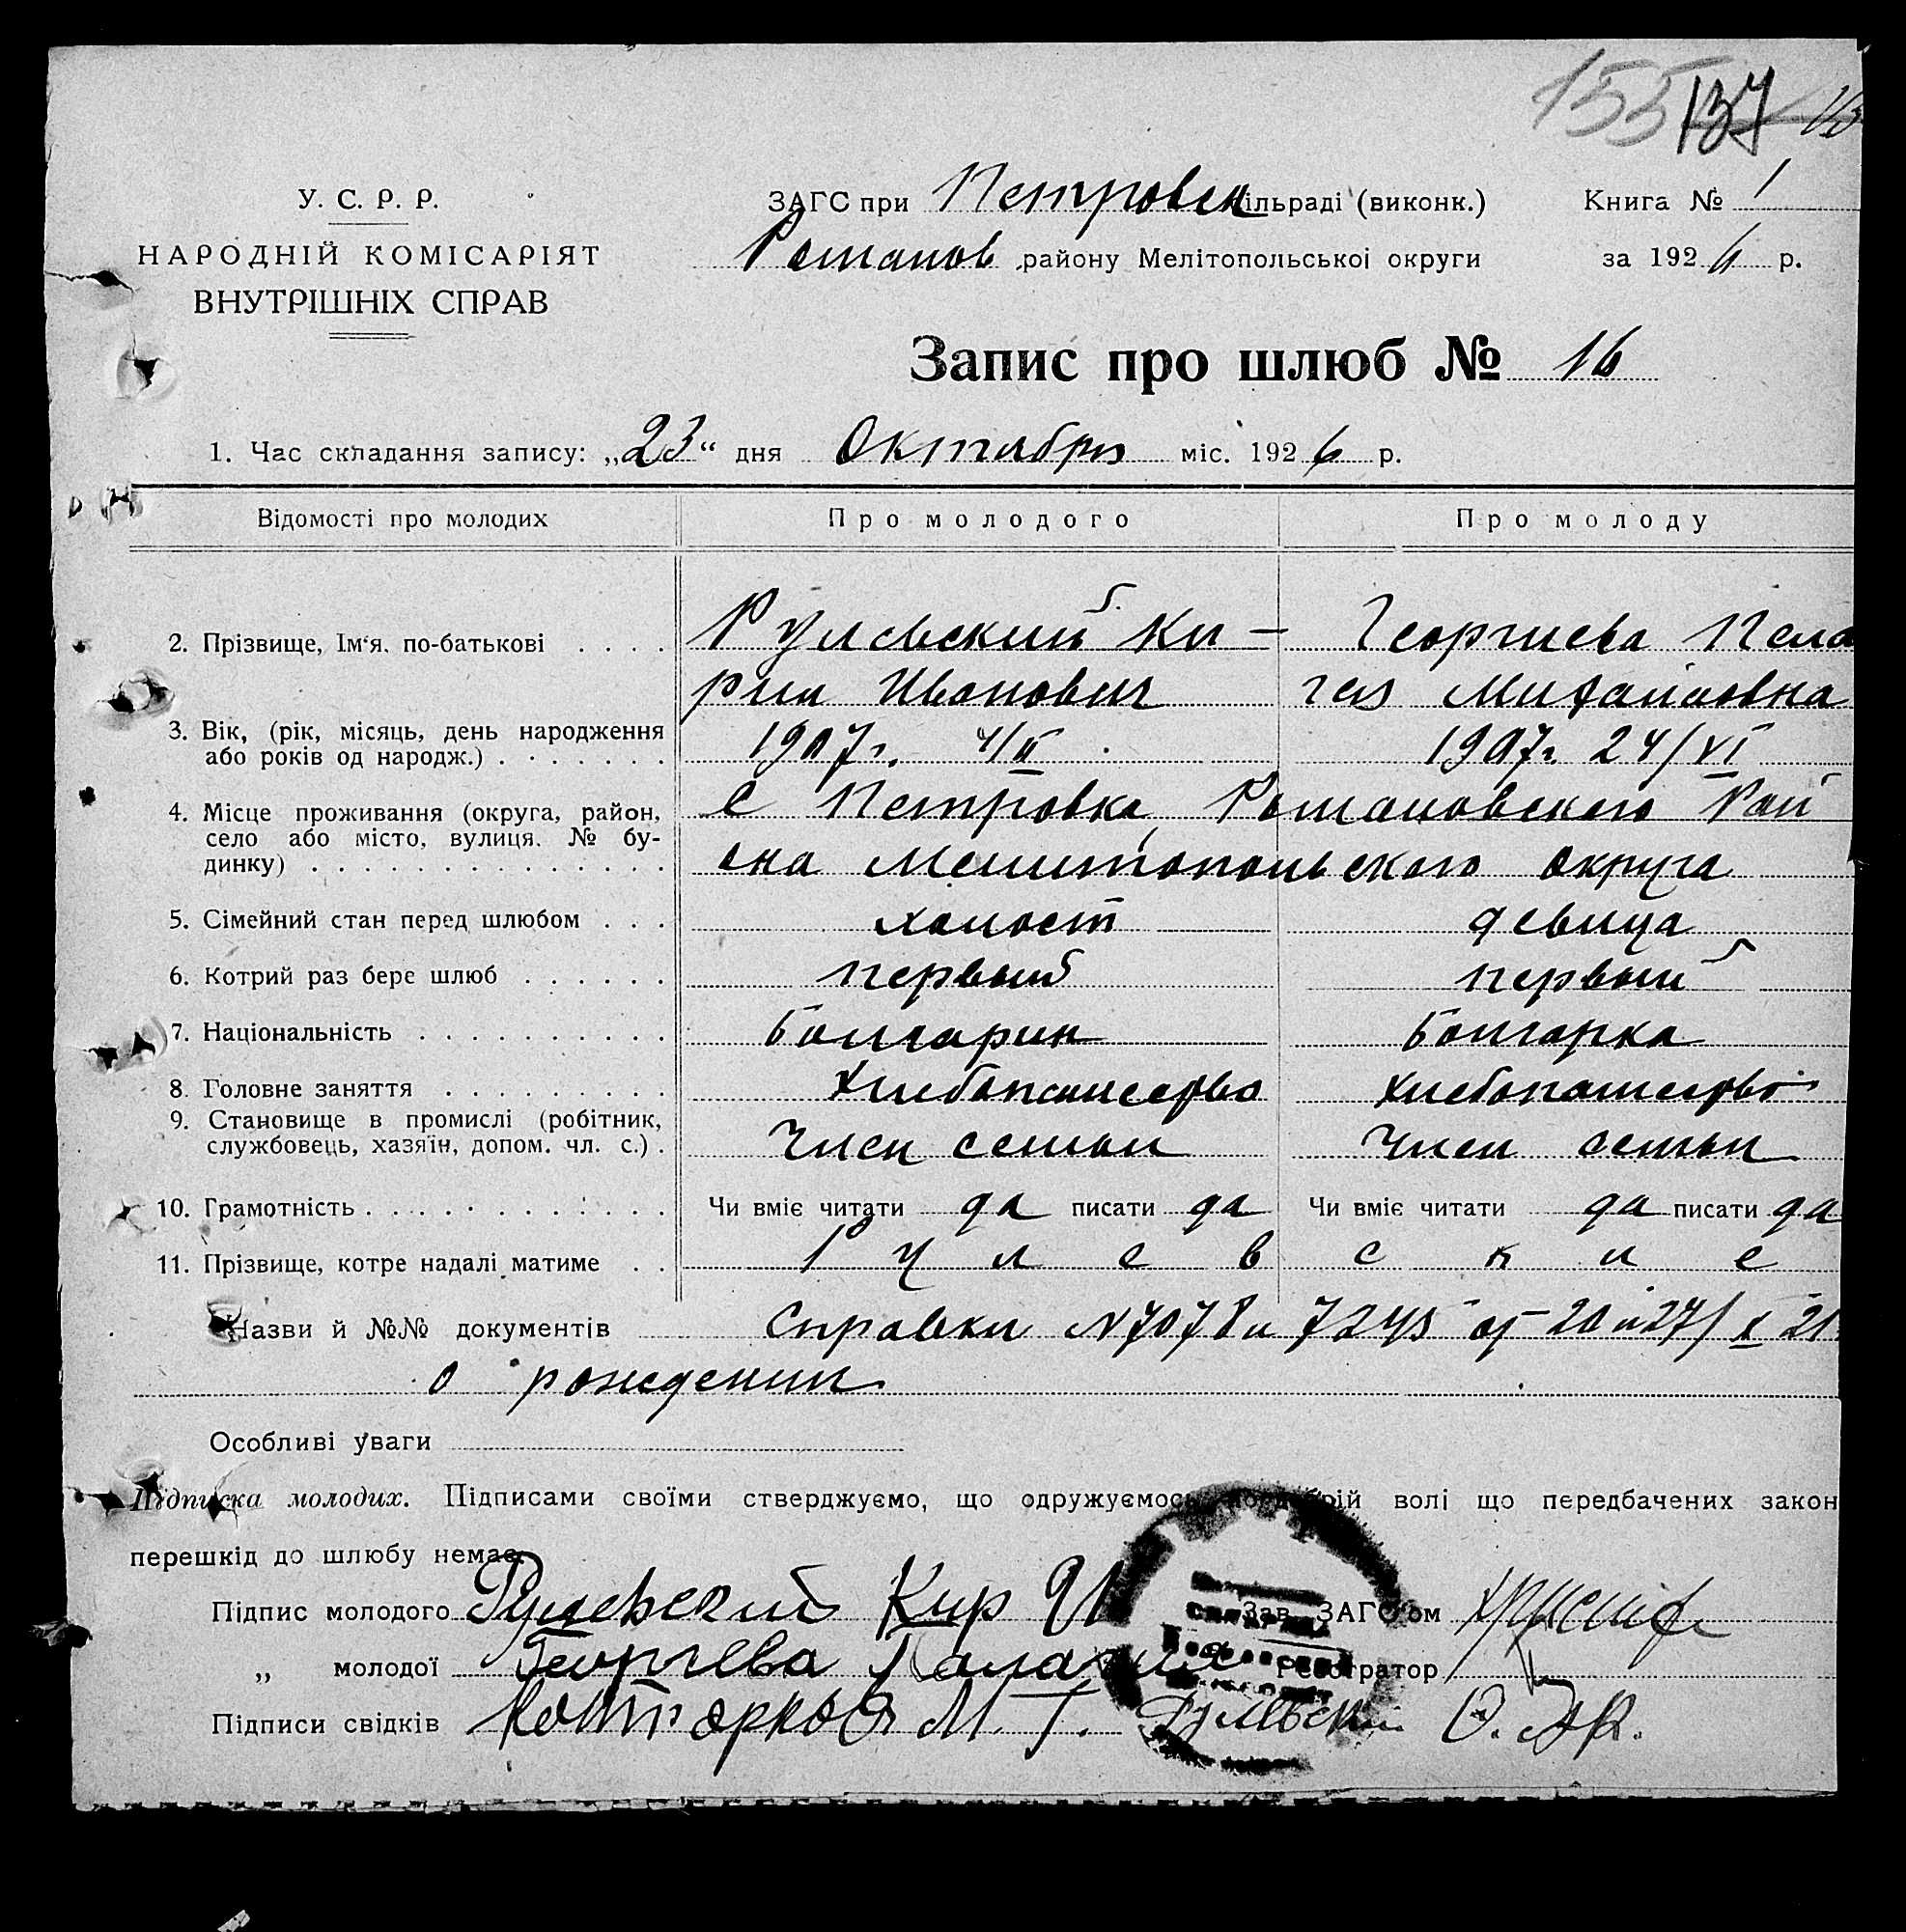 155 137
У. С. Р. Р.
ЗАГС при Петровск ільраді (виконк.) Книга № 1
НАРОДНІЙ КОМІСАРІЯТ
Романов району Мелітопольської округи за 1926 р.
ВНУТРІШНІХ СПРАВ
Запис про шлюб № 16
1. Час складання запису: „23“ дня Октября міс. 1926 р.
Відомості про молодих Про молодого Про молоду
2. Прізвище, Ім‘я, по-батькові . . . . Рулевский Ки- Георгиева Пела
рил Иванович гея Михайловна
3. Вік, (рік, місяць, день народження
або років од народж.) . . . . . . . 1907г. 4/II 1907г. 24/VI
4. Місце проживання (округа, район, с Петровка, Романовского Рай
село або місто, вулиця, № бу-
динку) . . . . . . . . . . . . . . она Мелитопольского округа
5. Сімейний стан перед шлюбом . . . холост девица
6. Котрий раз бере шлюб . . . . . . первый первый
7. Національність . . . . . . . . . . болгарин болгарка
8. Головне заняття . . . . . . . . . хлебопашество хлебопашество
9. Становище в промислі (робітник,
службовець, хазяїн, допом. чл. с.) . Член семьи Член семьи
10. Грамотність . . . . . . . . . . . . Чи вміє читати да писати да Чи вміє читати да писати да
11. Прізвище, котре надалі матиме . . Рулевские
Назви й №№ документів Справки №7078 и 7245 от 20 и 27/X 21
о рождении
Особливі уваги
Підписка молодих. Підписами своїми стверджуємо, що одружуємось по добрій волі що передбачених закон
перешкід до шлюбу немає.
Підпис молодого Рулевский Кир И Зав. ЗАГС‘ом
„ молодої Георгева Палагия Реєстратор
Підписи свідків М. Г.